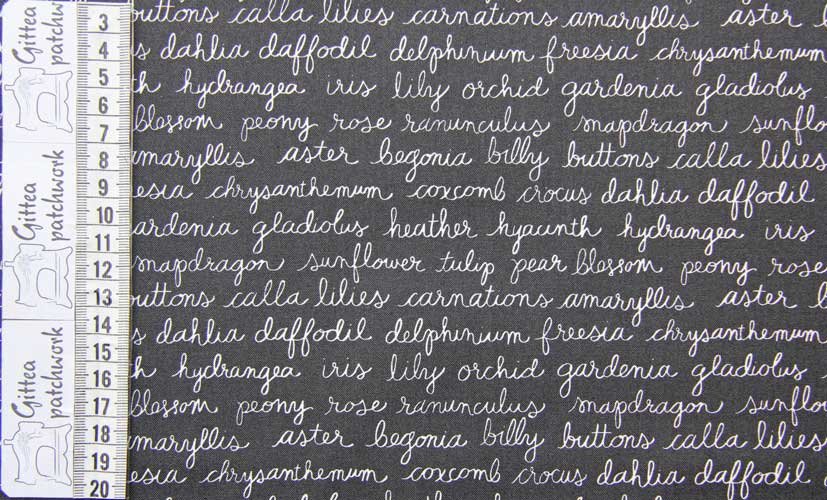 Gittea patchwork
Gittea patchwork
Gittea patchwork
3
4
5
6
7
8
9
10
11
12
13
14
15
16
17
18
19
20
buttons calla lilies carnations amaryllis aster
s dahlia daffodil delphinium freesia chrysanthemum
th hydrangea iris lily orchid gardenia gladiolus
blossom peony rose ranunculus snapdragon sunflo
amaryllis aster begonia billy buttons calla lilies
esia chrysanthemum coxcomb crocus dahlia daffodil
ardenia gladiolus heather hyacinth hydrangea iris
snapdragon sunflower tulip pear blossom peony rose
buttons calla lilies carnations amaryllis aster
s dahlia daffodil delphinium freesia chrysanthemum
h hydrangea iris lily orchid gardenia gladiolus
blossom peony rose ranunculus snapdragon sunflo
amaryllis aster begonia billy buttons calla lilies
esia chrysanthemum coxcomb crocus dahlia daffodil